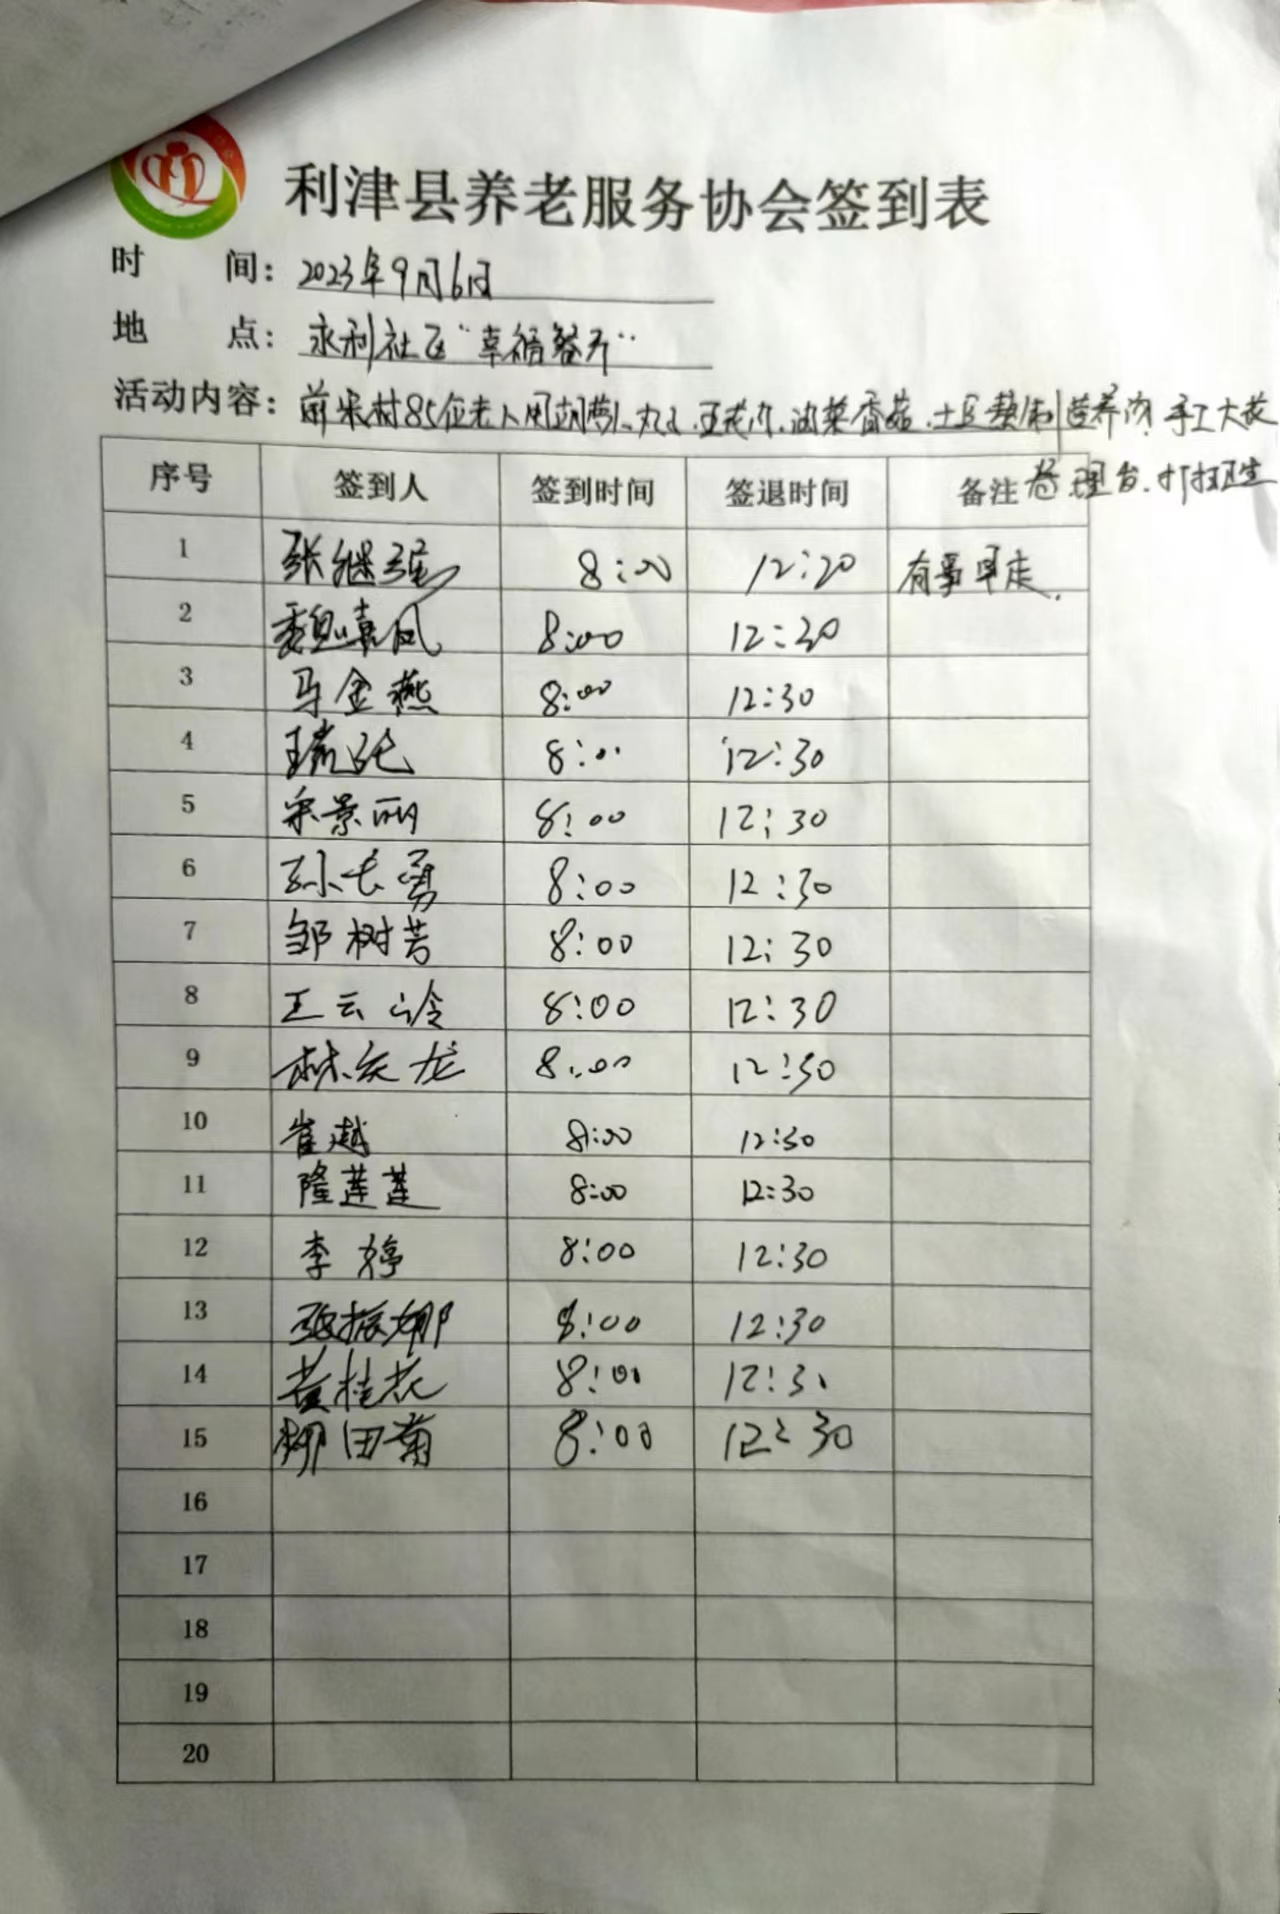 利津县养老服务协会签到表
时 间：2023年9月6日
地 点：永利社区"幸福餐厅"
活动内容：前宋村85位老人用胡萝卜丸子、油菜香菇、土豆 营养汤 手工大花
卷 理台、打扫卫生
序号 签到人 签到时间 签退时间 备注
1 张继强 8:00 12:20 有事早走.
2 魏嘉凤 8:00 12:30
3 马金燕 8:00 12:30
4 8:00 12:30
5 宋景丽 8:00 12:30
6 孙长勇 8:00 12:30
7 邹树芳 8:00 12:30
8 王云玲 8:00 12:30
9 8:00 12:30
10 崔越 8:00 12:30
11 隆莲莲 8:00 12:30
12 李婷 8:00 12:30
13 张振娜 8:00 12:30
14 黄桂花 8:00 12:30
15 田菊 8:00 12:30
16
17
18
19
20